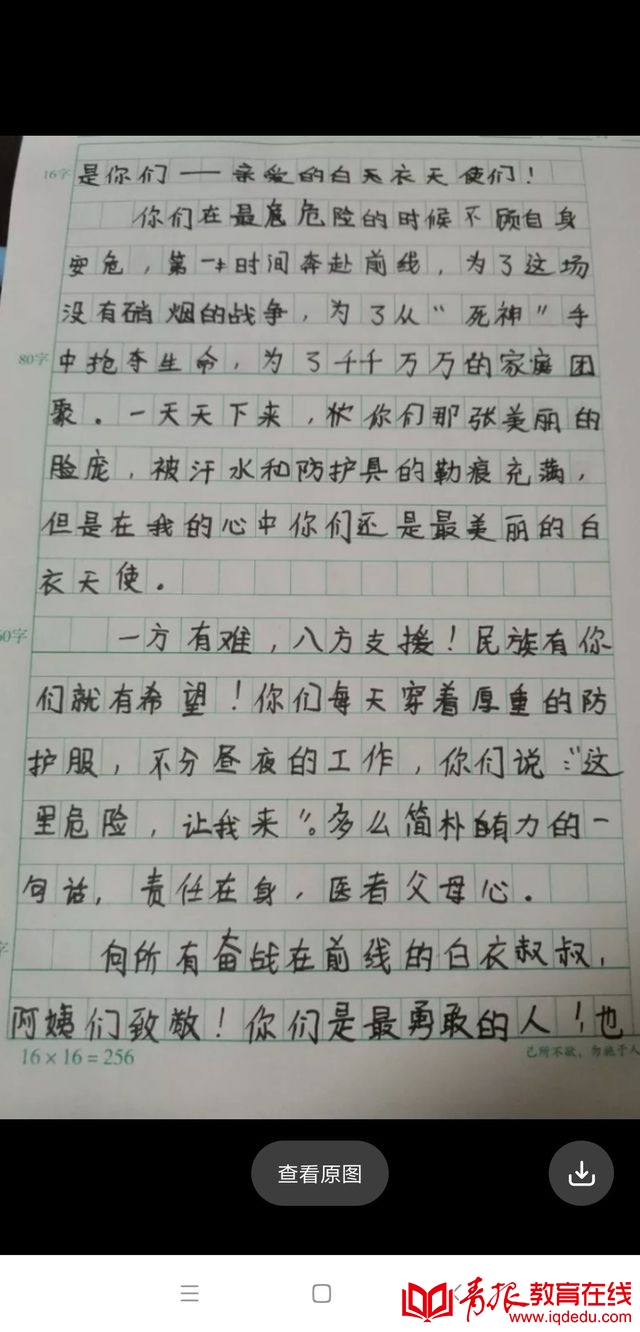 16字
是你们——亲爱的白衣天使们！
你们在最危险的时候不顾自身
安危，第一时间奔赴前线，为了这场
没有硝烟的战争，为了从“死神”手
80字
中抢夺生命，为了千千万万的家庭团
聚。一天天下来，你们那张美丽的
脸庞，被汗水和防护具的勒痕充满，
但是在我的心中你们还是最美丽的白
衣天使。
60字
一方有难，八方支援！民族有你
们就有希望！你们每天穿着厚重的防
护服，不分昼夜的工作，你们说：“这
里危险，让我来”。多么简朴有力的一
句话，责任在身，医者父母心。
字
向所有奋战在前线的白衣叔叔，
阿姨们致敬！你们是最勇敢的人！也
16×16=256
己所不欲，勿施于人
查看原图
青报教育在线
www.iqdedu.com